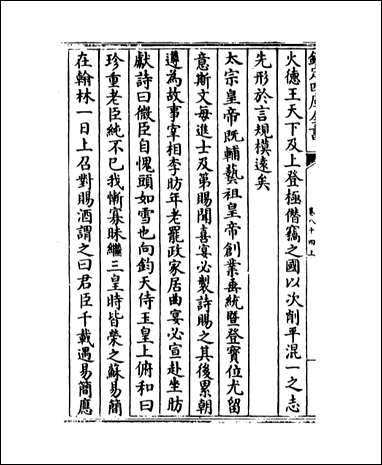 欽定四庫全書
卷八十四上
火徳王天下及上登極僭竊之國以次削平混一之志
先形於言規模逺矣
太宗皇帝既輔藝祖皇帝創業垂統暨登寳位尤留
意斯文每進士及第賜聞喜宴必製詩賜之其後累朝
遵為故事宰相李昉年老罷政家居曲宴必宣赴坐昉
獻詩曰微臣自愧頭如雪也向鈞天侍玉皇上俯和曰
珍重老臣純不已我慚寡昧繼三皇時皆榮之蘇易簡
在翰林一日上召對賜酒謂之曰君臣千載遇易簡應